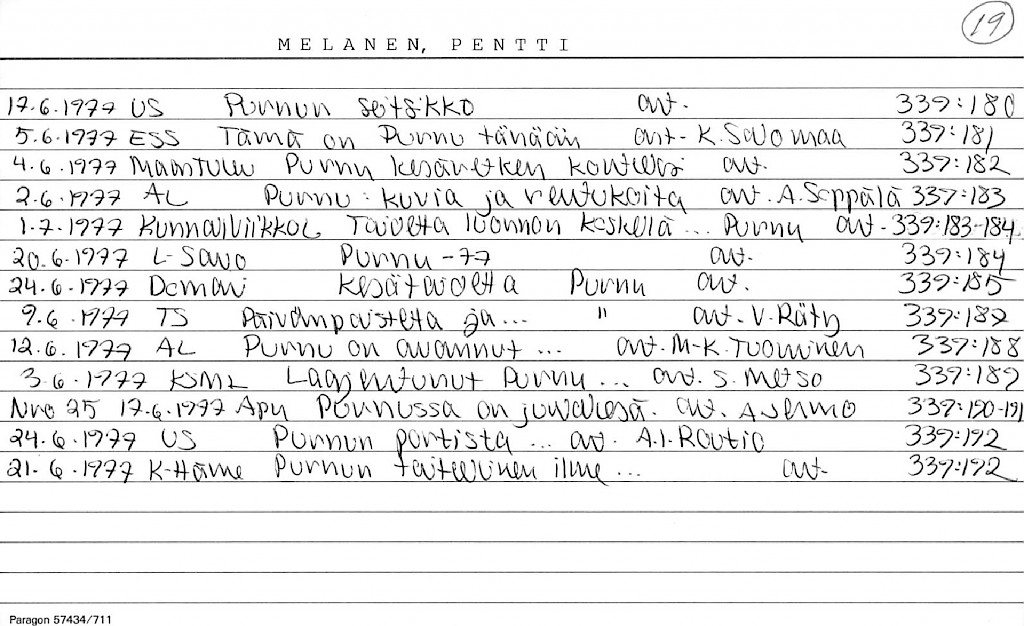 19
MELANEN, PENTTI
17.6.1977 US Purnun seitsikko art. 339:180
5.6.1977 ESS Tämä on Purnu tänään art. K. Salomaa 339:181
4.6.1977 Maaseutu Purnu kesäretken kohteksi art. 339:182
2.6.1977 AL Purnu: kuvia ja veistoksia art. A. Seppälä 339:183
1.7.1977 Kunnallviikkol Taidetta luonnon keskellä... Purnu art. 339:183-184
20.6.1977 L-Savo Purnu-77 art. 339:184
24.6.1977 Demari Kesätaidetta Purnu art. 339:185
9.6.1977 TS Päivänpaistetta ja... " art. V. Räty 339:187
12.6.1977 AL Purnu on avannut ... art. M-K. Tuominen 339:188
3.6.1977 KSML Laajentunut Purnu ... art. S. Metso 339:189
Nro 25 17.6.1977 Apu Purnussa on art. 339:190-191
24.6.1977 US Purnun portista ... art. A.I. Routio 339:192
21.6.1977 K-Häme Purnun taiteellinen ilme ... art. 339:192
Paragon 57434/711